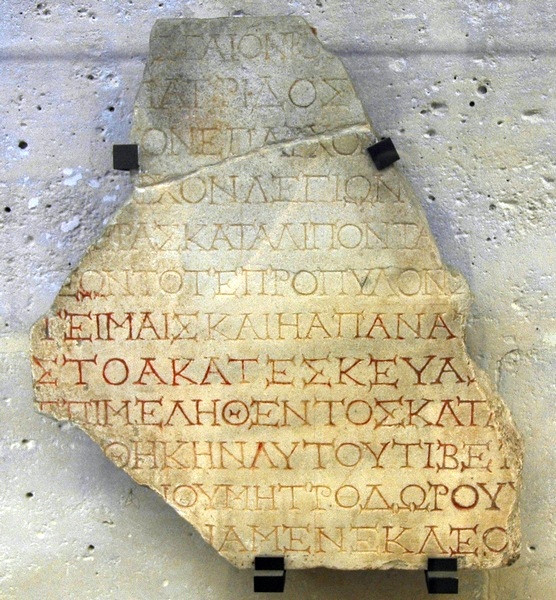 ΣΕΛΙΟΝ
ΠΑΤΡΙΔΟΣ
ΟΝΕΠΑΡΧΟΝ
ΑΡΧΟΝΛΕΓΙΩΝ
ΟΡΑΣΚΑΤΑΛΙΠΟΝΤΑ
ΩΝΤΟΤΕΠΡΟΠΥΛΟΝ
ΤΕΙΜΑΙΣΚΑΙΗΑΠΑΝΑ
ΣΤΟΑΚΑΤΕΣΚΕΥΑ
ΕΠΙΜΕΛΗΘΕΝΤΟΣΚΑΤΑ
ΘΗΚΗΝΑΥΤΟΥΤΙΒΕ
ΙΟΥΜΗΤΡΟΔΩΡΟΥ
ΙΑΜΕΝΕΚΛΕΟ